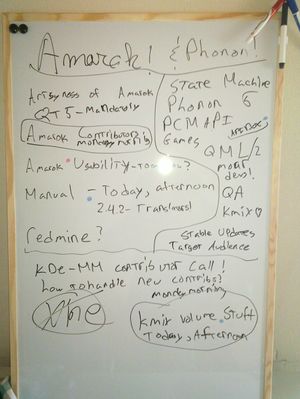 Amarok! & Phonon!
Artsyness of Amarok
QT5 - Mandatory
Amarok Contributors
monday morning
Amarok Usability - tomorrow?
Manual - Today, afternoon
2.4.2 - Translators!
redmine?
State Machine
Phonon 5
PCM API
Games
API DOX
QML/2
more devs!
QA
Kmix ♡
Stable Updates
Target Audience
KDE-MM contributor call!
how to handle new contribs?
monday morning
Xine
kmix volume stuff
Today, Afternoon